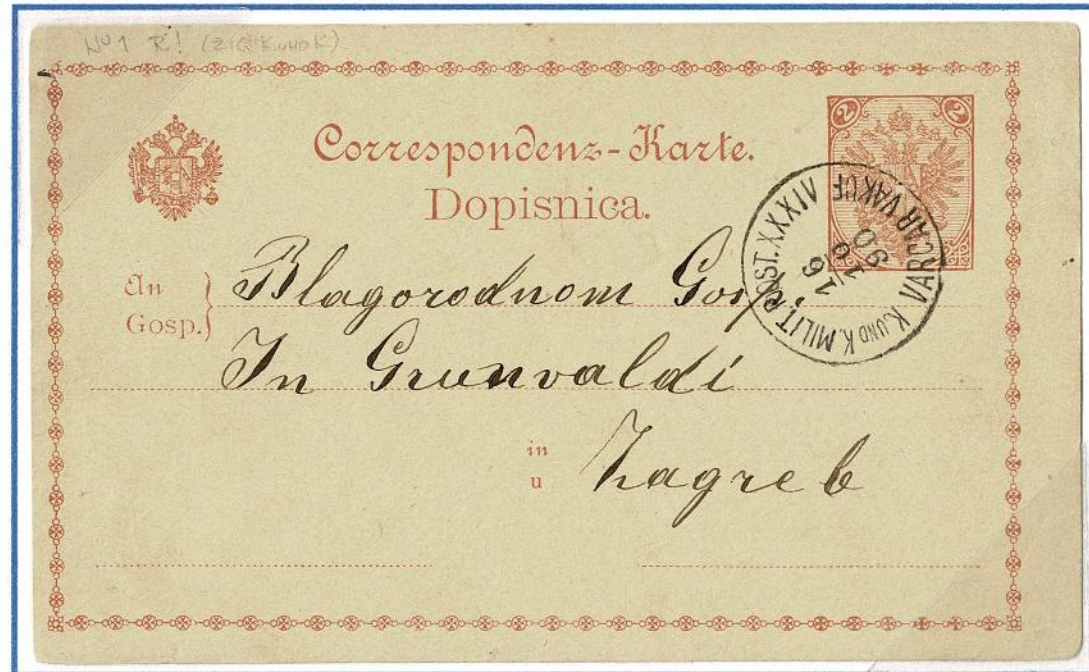 No 1 R! (ZIG K und K)
Correspondenz-Karte.
Dopisnica.
2 2
K. UND K. MILIT. POST. XXXIV VARCAR VAKUF
16
10
90
An
Gosp.
Blagorodnom Gosp.
Grunvaldi
in
u
Zagreb